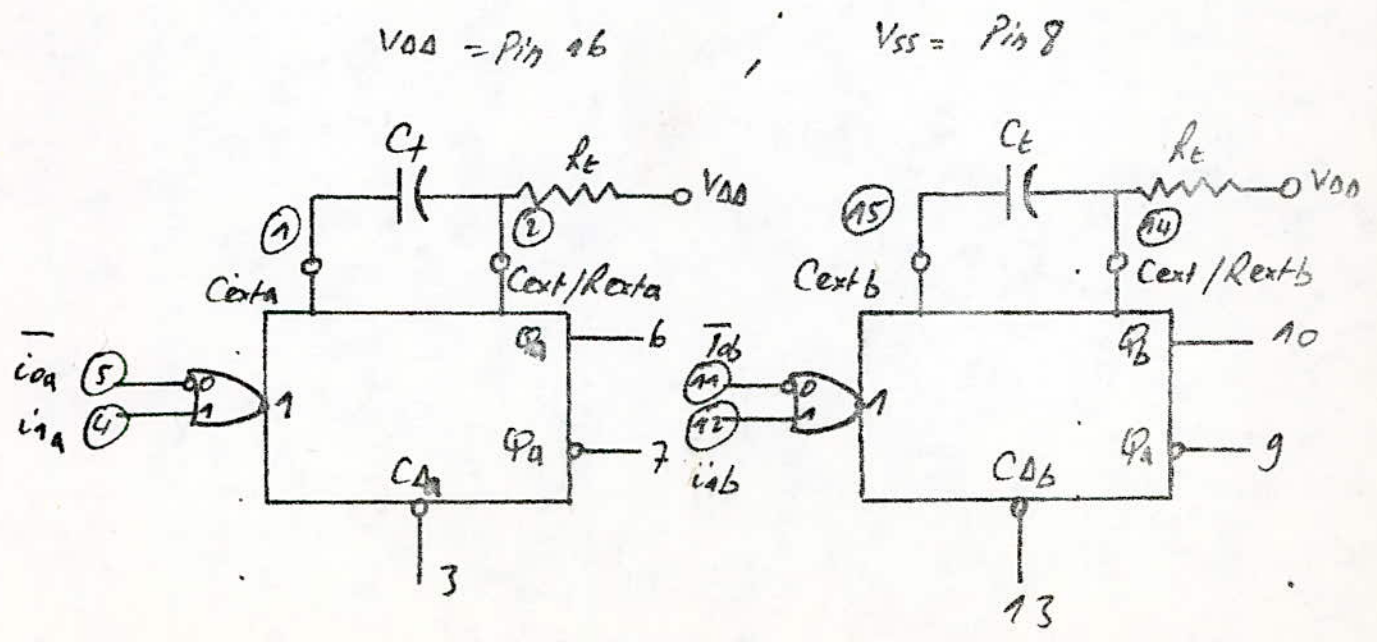 VDD = Pin 16 , VSS = Pin 8
Ct Rt VDD
1 2
Cexta Cext/Rexta
i0a 5 0
i1a 4 1 1
Qa 6
Qa 7
CDa
3
Ct Rt VDD
15 14
Cextb Cext/Rextb
I0b 11 0
12 1 1
i1b
Qb 10
Qa 9
CDb
13